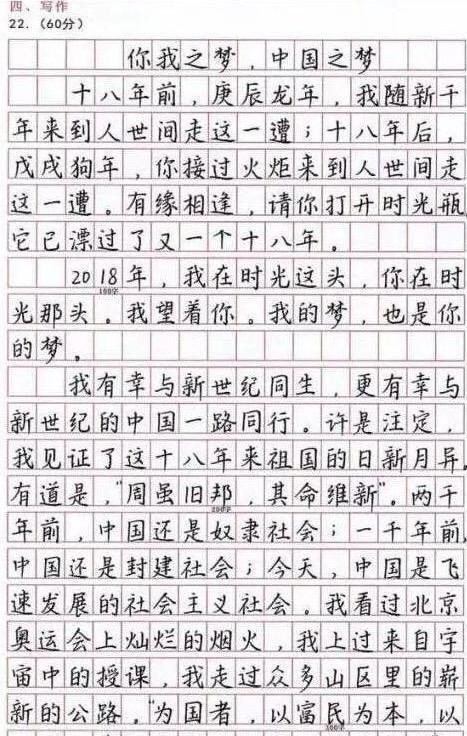 四、写作
22.（60分）
你我之梦，中国之梦
十八年前，庚辰龙年，我随新千
年来到人世间走这一遭；十八年后，
戊戌狗年，你接过火炬来到人世间走
这一遭。有缘相逢，请你打开时光瓶
它已漂过了又一个十八年。
2018年，我在时光这头，你在时
100字
光那头。我望着你。我的梦，也是你
的梦。
我有幸与新世纪同生，更有幸与
新世纪的中国一路同行。许是注定，
我见证了这十八年来祖国的日新月异。
有道是，“周虽旧邦，其命维新”。两千
200字
年前，中国还是奴隶社会；一千年前，
中国还是封建社会；今天，中国是飞
速发展的社会主义社会。我看过北京
奥运会上灿烂的烟火，我上过来自宇
宙中的授课，我走过众多山区里的崭
新的公路。“为国者，以富民为本，以
300字